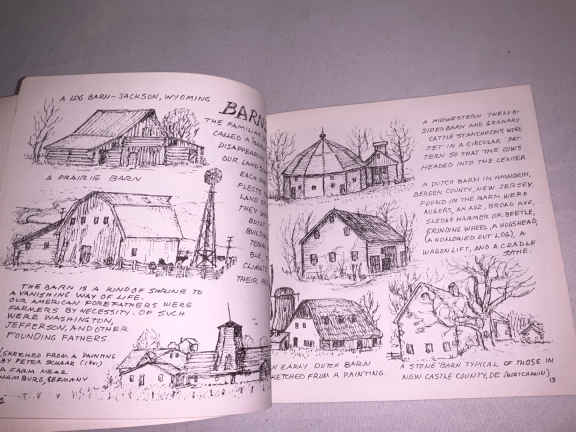 A LOG BARN — JACKSON, WYOMING
BARN
THE FAMILIA
CALLED A
DISAPPEAR
OUR LAN
EACH
LAND
THEY
BUIL
BUILDIN
CLIMAT
THEIR
A PRAIRIE BARN
THE BARN IS A KIND OF SHRINE TO
A VANISHING WAY OF LIFE.
OUR AMERICAN FOREFATHERS WERE
FARMERS BY NECESSITY. OF SUCH
WERE WASHINGTON,
JEFFERSON, AND OTHER
FOUNDING FATHERS.
SKETCHED FROM A PAINTING
BY PETER
A FARM NEAR
HAMBURG, GERMANY
A MIDWESTERN TWELVE-
SIDED BARN AND GRANARY
CATTLE STANCHEONS WERE
SET IN A CIRCULAR PAT-
TERN SO THAT THE COWS
HEADED INTO THE CENTER
A DUTCH BARN IN
BERGEN COUNTY, NEW JERSEY.
FOUND IN THE BARN WERE
AUGERS, AN ADZ, BROAD AXE,
SLEDGE HAMMER OR BEETLE,
GRINDING WHEEL, A HOGSHEAD,
(A HOLLOWED OUT LOG), A
WAGON LIFT, AND A CRADLE
SYTHE.
EARLY DUTCH BARN
SKETCHED FROM A PAINTING
A STONE BARN TYPICAL OF THOSE IN
NEW CASTLE COUNTY, DE
13